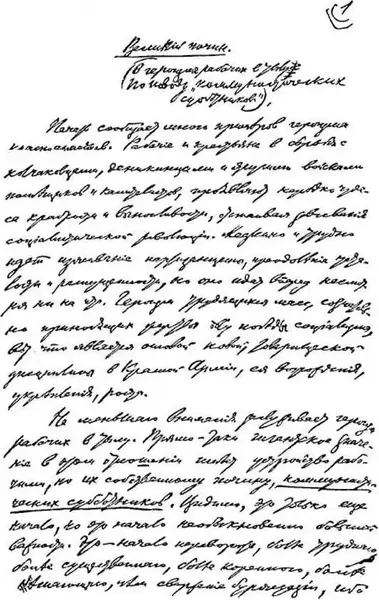 1
Великий почин.
(О героизме рабочих в тылу.
По поводу „коммунистических
субботников“).
Печать сообщает много примеров героизма
красноармейцев. Рабочие и крестьяне в борьбе с
колчаковцами, деникинцами и другими войсками
помещиков и капиталистов, проявляют нередко чуде-
са храбрости и выносливости, отстаивая завоевания
социалистической революции. Медленно и трудно
идет изживание партизанщины, преодоление уста-
лости и распущенности, но оно идет вперед несмот-
ря ни на что. Героизм трудящихся масс, сознатель-
но приносящих жертвы делу победы социализма,
вот что является основой новой, товарищеской
дисциплины в Красной Армии, ея возрождения,
укрепления, роста.
Не меньшего внимания заслуживает героизм
рабочих в тылу. Прямо-таки гигантское значе-
ние в этом отношении имеет устройство рабо-
чими, по их собственному почину, коммунисти-
ческих субботников. Видимо, это только еще
начало, но это начало необыкновенно большой
важности. Это — начало переворота, более трудного,
более существенного, более коренного, более
решающего, чем свержение буржуазии, ибо